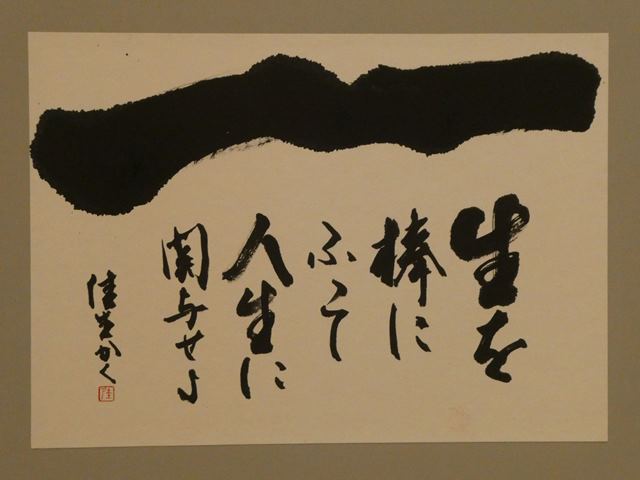 生を
棒に
ふって
人生に
関与せよ
佳岑かく